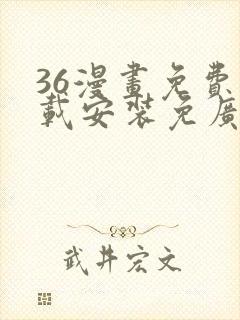 36漫畫免費
載安裝免廣
武井宏文